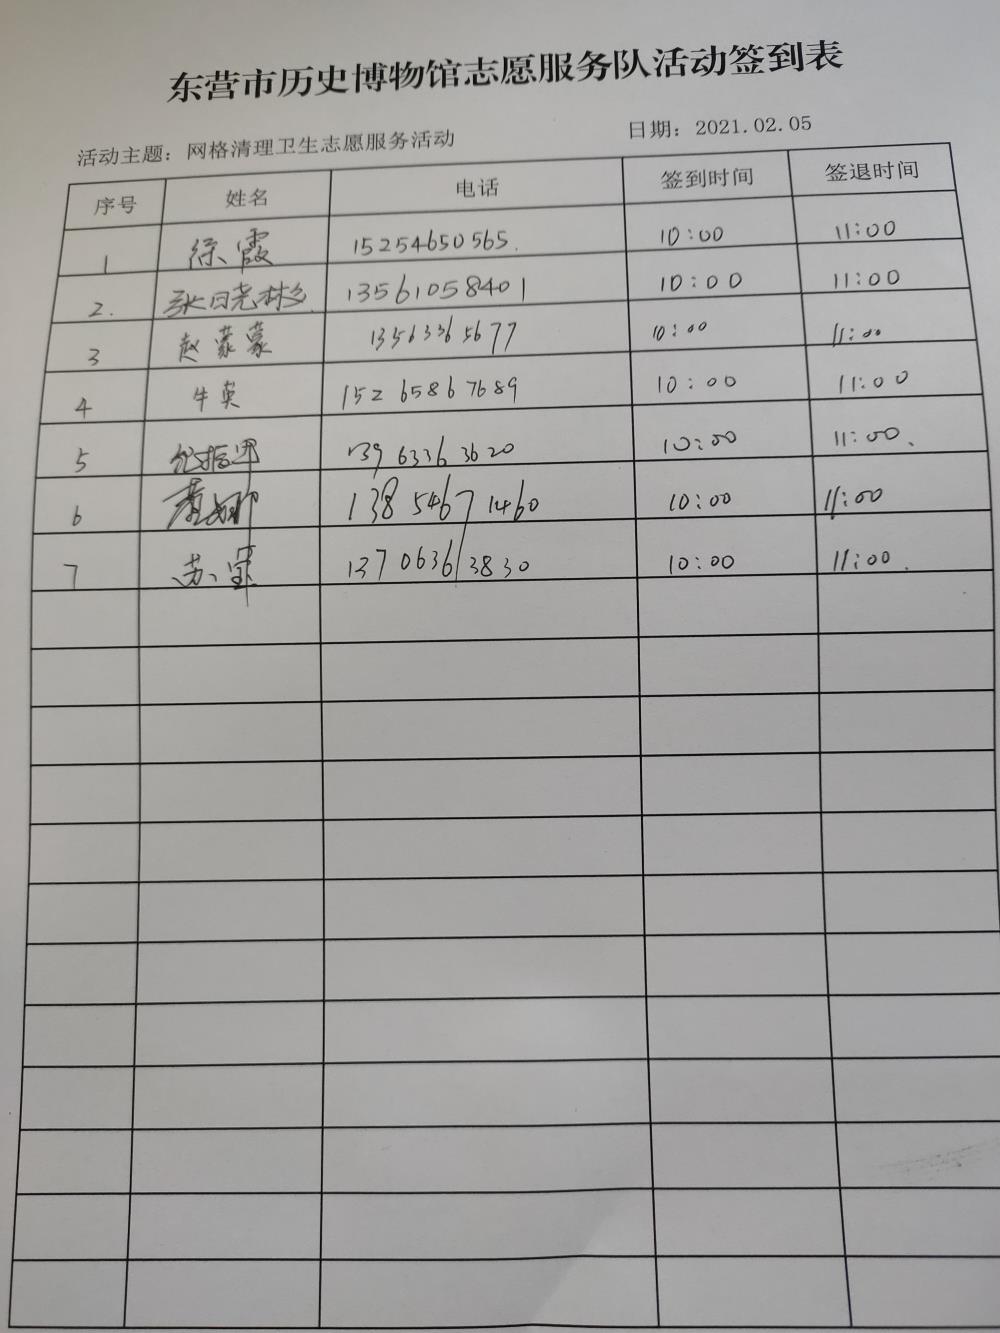 东营市历史博物馆志愿服务队活动签到表
活动主题：网格清理卫生志愿服务活动 日期：2021.02.05
序号 姓名 电话 签到时间 签退时间
1 徐霞 15254650565. 10:00 11:00
2. 张晓彬 13561058401 10:00 11:00
3 赵蒙蒙 13563365677 10:00 11:00
4 牛英 15265867689 10:00 11:00
5 13963363620 10:00 11:00、
6 黄娜 13854671460 10:00 11:00
7 苏宝 13706363830 10:00 11:00.